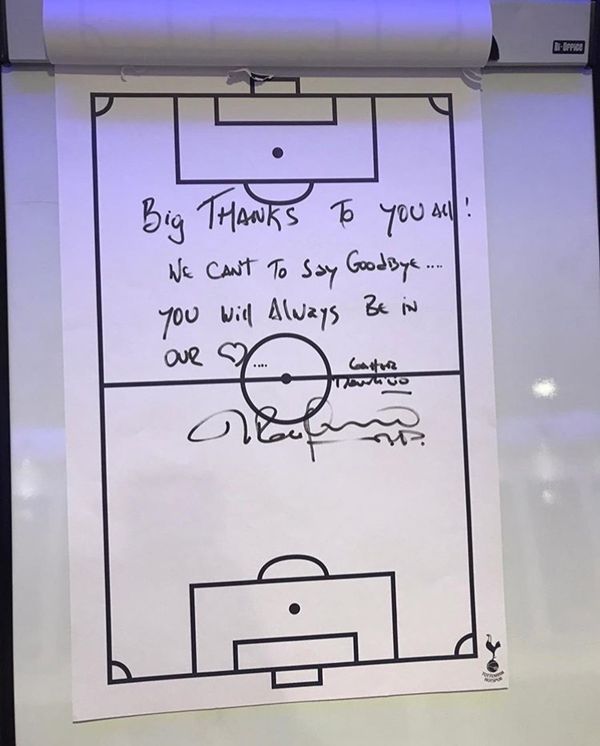 Bi-Office
Big THANKS To YOU All!
WE CANT To Say GoodByE ....
YOU Will Always BE iN
OUR ♡....
TOTTENHAM
HOTSPUR